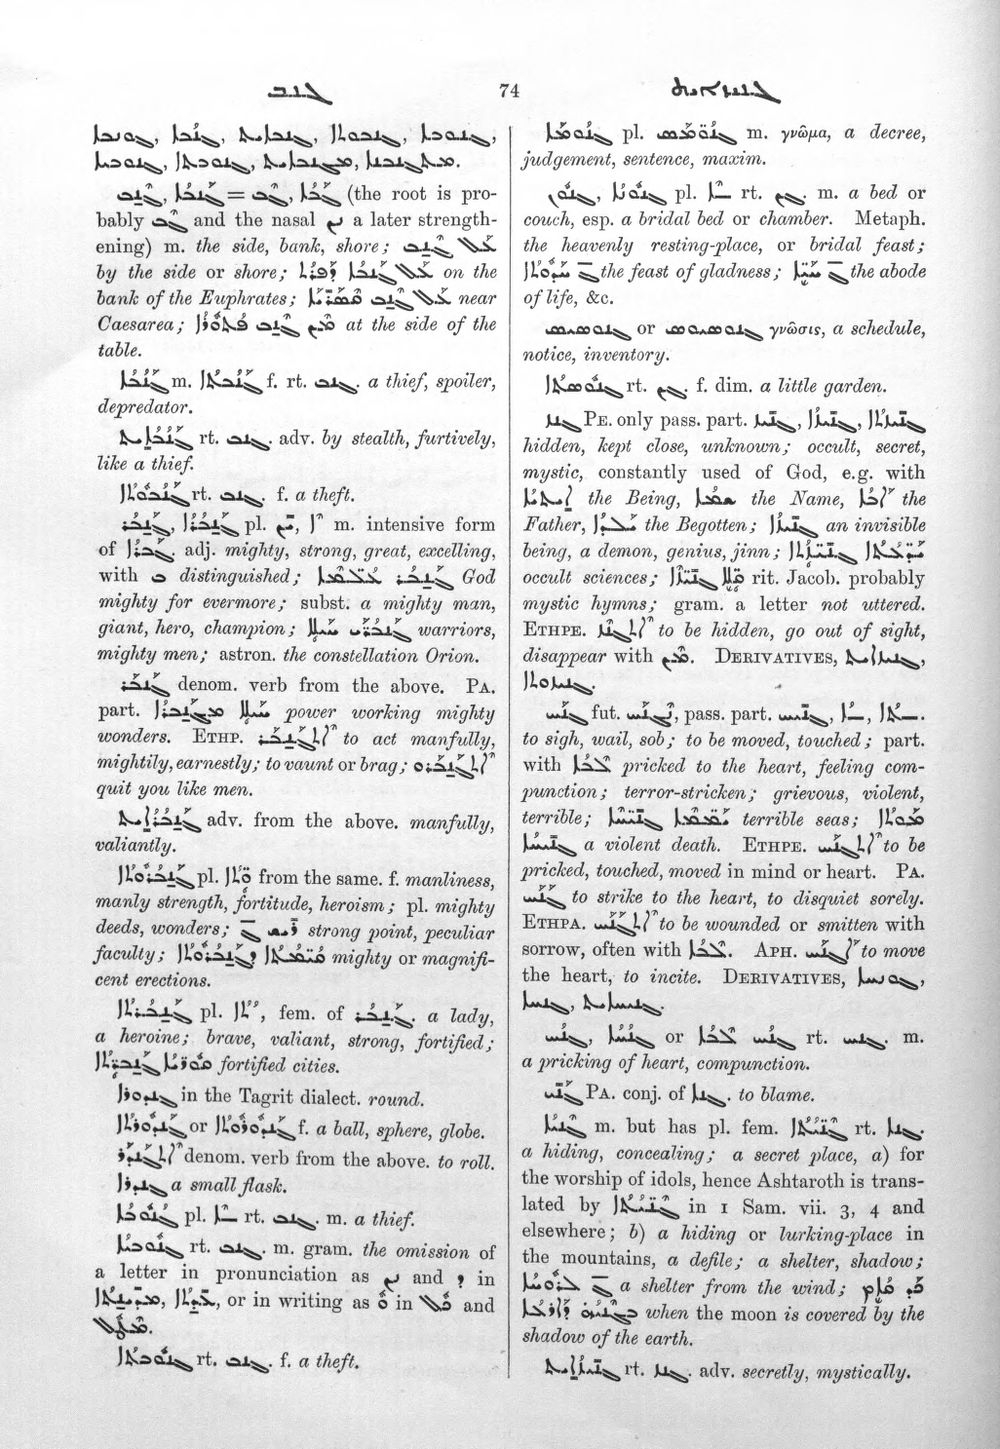 ܓܢܒ 74 ܓܢܝܙܐܝܬ
ܓܢܘܒܐ, ܓܢܒܘܬܐ, ܓܢܒܐܝܬ, ܓܢܒܐ, ܓܘܢܒܐ
ܡܬܓܢܒܢܐ, ܡܓܢܒܐܝܬ, ܓܢܘܒܬܐ, ܓܢܘܒܝܐ.
ܓܢܒ, ܓܢܒܐ = ܓܒ, ܓܒܐ (the root is pro-
bably ܓܒ and the nasal ܢ a later strength-
ening) m. the side, bank, shore; ܥܠ ܓܢܒ
by the side or shore; ܥܠ ܓܢܒܐ ܦܪܬ on the
bank of the Euphrates; ܥܠ ܓܢܒ ܩܣܪܝܐ near
Caesarea; ܡܢ ܓܢܒ ܦܬܘܪܐ at the side of the
table.
ܓܢܒܐ m. ܓܢܒܬܐ f. rt. ܓܢܒ. a thief, spoiler,
depredator.
ܓܢܒܐܝܬ rt. ܓܢܒ. adv. by stealth, furtively,
like a thief.
ܓܢܒܘܬܐ rt. ܓܢܒ. f. a theft.
ܓܢܒܪ, ܓܢܒܪܐ pl. m. intensive form
of ܓܒܪܐ. adj. mighty, strong, great, excelling,
with ܒ distinguished; ܓܢܒܪ ܥܠܡܐ God
mighty for evermore; subst. a mighty man,
giant, hero, champion; ܓܢܒܪܝ ܚܝܠܐ warriors,
mighty men; astron. the constellation Orion.
ܓܢܒܪ denom. verb from the above. PA.
part. ܚܝܠܐ ܡܓܢܒܪܐ power working mighty
wonders. ETHP. ܐܬܓܢܒܪ to act manfully,
mightily, earnestly; to vaunt or brag; ܐܬܓܢܒܪܘ
quit you like men.
ܓܢܒܪܐܝܬ adv. from the above. manfully,
valiantly.
ܓܢܒܪܘܬܐ pl. from the same. f. manliness,
manly strength, fortitude, heroism; pl. mighty
deeds, wonders; strong point, peculiar
faculty; mighty or magnifi-
cent erections.
ܓܢܒܪܬܐ pl. fem. of ܓܢܒܪ. a lady,
a heroine; brave, valiant, strong, fortified;
fortified cities.
in the Tagrit dialect. round.
or f. a ball, sphere, globe.
denom. verb from the above. to roll.
a small flask.
ܓܢܘܒܐ pl. rt. ܓܢܒ. m. a thief.
ܓܢܘܒܝܐ rt. ܓܢܒ. m. gram. the omission of
a letter in pronunciation as ܢ and ܕ in
or in writing as ܘ in ܟܠ and
ܡܛܠ.
ܓܢܘܒܬܐ rt. ܓܢܒ. f. a theft.
pl. m. γνῶμα, a decree,
judgement, sentence, maxim.
ܓܢܘܢ, ܓܢܘܢܐ pl. rt. ܓܢ. m. a bed or
couch, esp. a bridal bed or chamber. Metaph.
the heavenly resting-place, or bridal feast;
the feast of gladness; the abode
of life, &c.
or γνῶσις, a schedule,
notice, inventory.
rt. ܓܢ. f. dim. a little garden.
ܓܢܙ PE. only pass. part. ܓܢܝܙ, ܓܢܝܙܐ, ܓܢܝܙܬܐ
hidden, kept close, unknown; occult, secret,
mystic, constantly used of God, e.g. with
ܐܝܬܝܐ the Being, ܫܡܐ the Name, ܐܒܐ the
Father, ܝܠܝܕܐ the Begotten; ܓܢܝܙܐ an invisible
being, a demon, genius, jinn;
occult sciences; rit. Jacob. probably
mystic hymns; gram. a letter not uttered.
ETHPE. ܐܬܓܢܙ to be hidden, go out of sight,
disappear with ܡܢ. DERIVATIVES, ܓܢܝܙܐܝܬ,
ܓܢܝܙܘܬܐ.
ܓܢܚ fut. ܢܓܢܚ, pass. part. ܓܢܝܚ
to sigh, wail, sob; to be moved, touched; part.
with ܠܒܐ pricked to the heart, feeling com-
punction; terror-stricken; grievous, violent,
terrible; ܝܡܡܐ ܓܢܝܚܐ terrible seas; ܡܘܬܐ
ܓܢܝܚܐ a violent death. ETHPE. ܐܬܓܢܚ to be
pricked, touched, moved in mind or heart. PA.
ܓܢܚ to strike to the heart, to disquiet sorely.
ETHPA. ܐܬܓܢܚ to be wounded or smitten with
sorrow, often with ܠܒܐ. APH. ܐܓܢܚ to move
the heart, to incite. DERIVATIVES, ܓܘܢܚܐ,
ܓܢܚܐ, ܓܢܝܚܐܝܬ.
ܓܢܚ, ܓܢܚܐ or ܓܢܚ ܠܒܐ rt. ܓܢܚ. m.
a pricking of heart, compunction.
ܓܢܝ PA. conj. of ܓܢܐ. to blame.
ܓܢܝܐ m. but has pl. fem. ܓܢܝܬܐ rt. ܓܢܐ.
a hiding, concealing; a secret place, a) for
the worship of idols, hence Ashtaroth is trans-
lated by ܓܢܝܬܐ in 1 Sam. vii. 3, 4 and
elsewhere; b) a hiding or lurking-place in
the mountains, a defile; a shelter, shadow;
a shelter from the wind;
when the moon is covered by the
shadow of the earth.
ܓܢܝܙܐܝܬ rt. ܓܢܙ. adv. secretly, mystically.